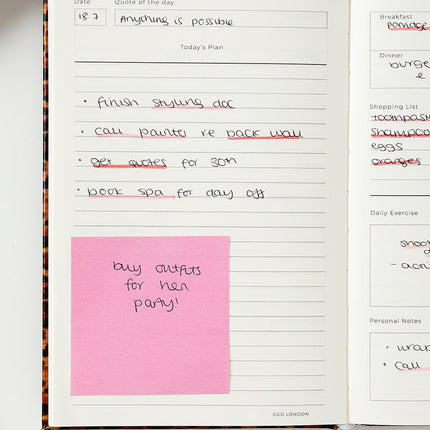 Date
Quote of the day:
18.7
Anything is possible
Today's Plan
• finish styling doc
• call painter re back wall
• get quotes for 30m
• book spa for day off
buy outfits
for hen
party!
CGD LONDON
Breakfast
porridge
Dinner
burge
Shopping List
toothpast
shampoo
eggs
oranges
Daily Exercise
Personal Notes
• wrap
• call